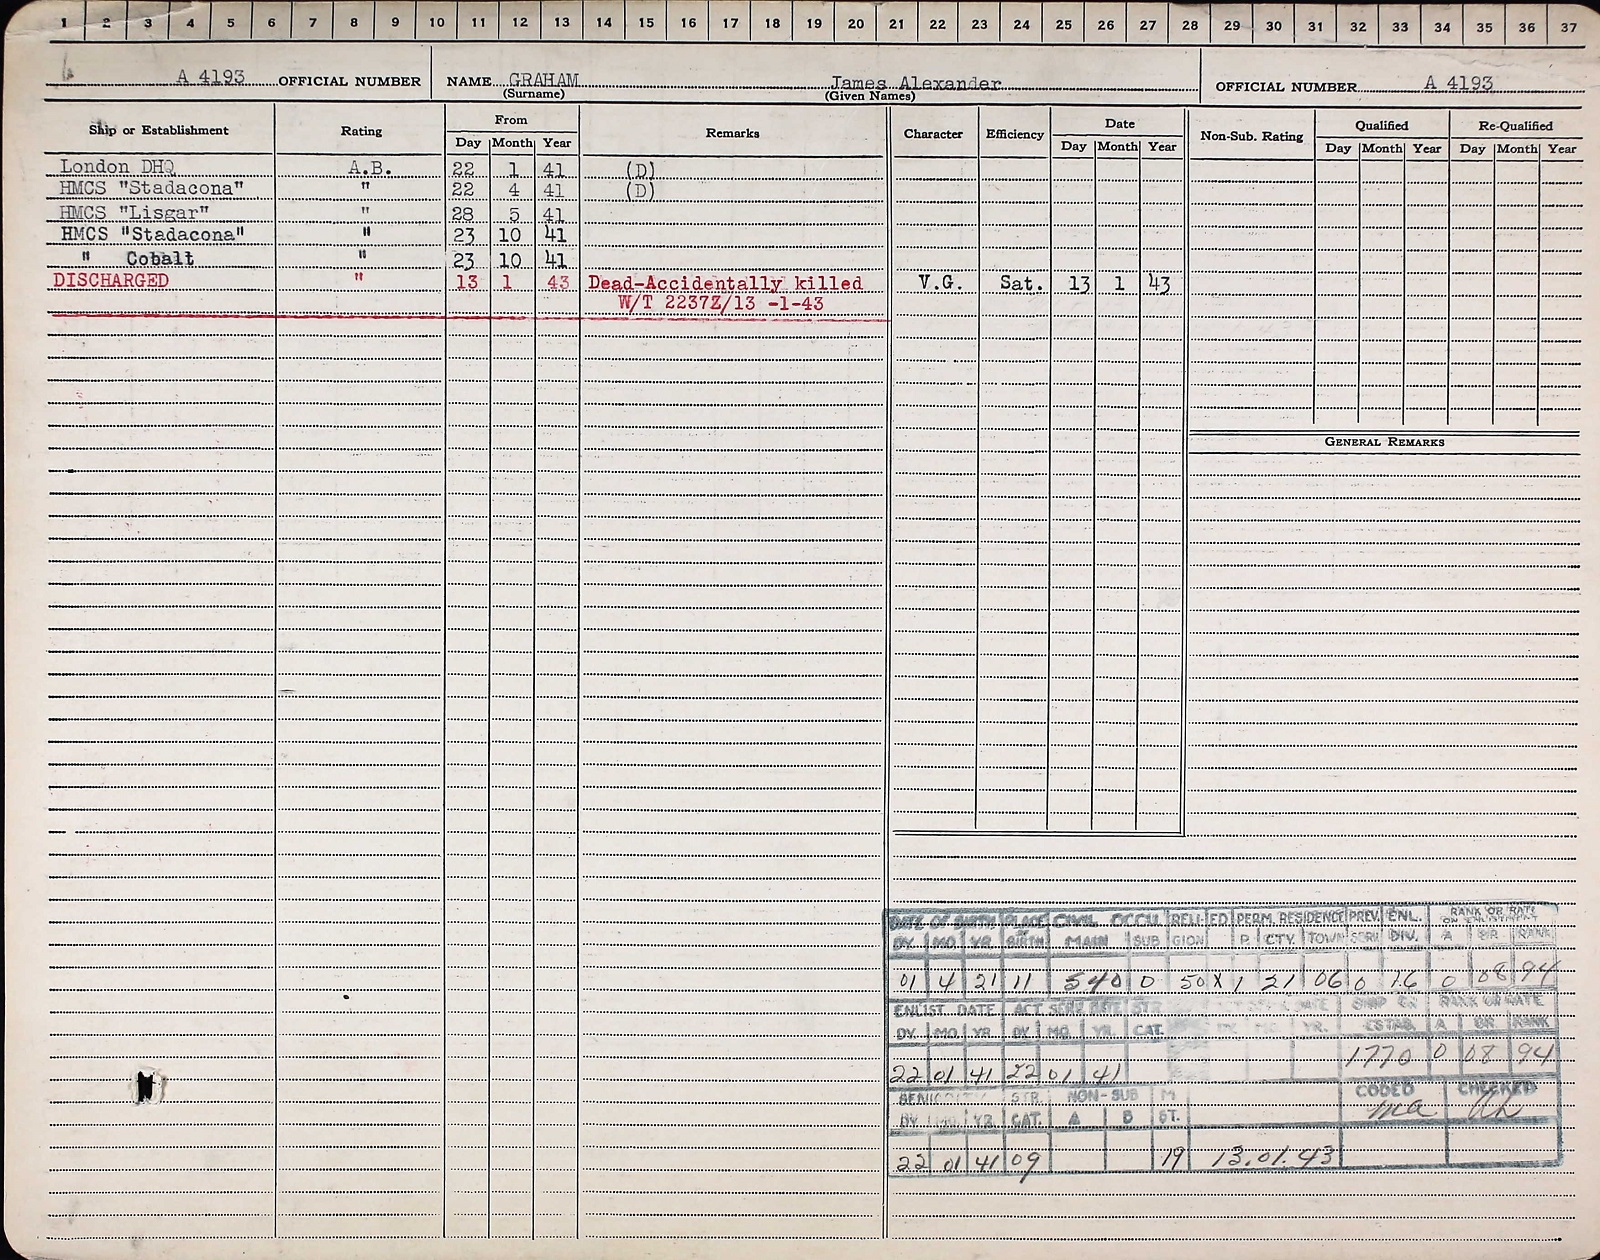 1 2 3 4 5 6 7 8 9 10 11 12 13 14 15 16 17 18 19 20 21 22 23 24 25 26 27 28 29 30 31 32 33 34 35 36 37
A 4193 OFFICIAL NUMBER NAME GRAHAM James Alexander OFFICIAL NUMBER A 4193
(Surname) (Given Names)
Ship or Establishment Rating From Remarks Character Efficiency Date Non-Sub. Rating Qualified Re-Qualified
Day Month Year Day Month Year Day Month Year Day Month Year
London DHQ A.B. 22 1 41 (D)
HMCS "Stadacona" " 22 4 41 (D)
HMCS "Lisgar" " 28 5 41
HMCS "Stadacona" " 23 10 41
" Cobalt " 23 10 41
DISCHARGED " 13 1 43 Dead-Accidentally killed V.G. Sat. 13 1 43
W/T 2237Z/13 -1-43
GENERAL REMARKS
DATE OF BIRTH PLACE CIVIL OCCU. RELI- ED PERM. RESIDENCE PREV. ENL. RANK OR RATE
ON ENLISTMENT
DY. MO. YR. OF BIRTH MAIN SUB GION P. CTY. TOWN SERV. DIV. A BR. RANK
01 4 21 11 540 0 50 X 1 21 06 0 16 0 08 94
ENLIST. DATE ACT. SERV. DATE STR. DATE SHIP OR RANK OR RATE
DY. MO. YR. DY. MO. YR. CAT. MO. YR. ESTAB. A BR. RANK
1770 0 08 94
22 01 41 22 01 41
SENIORITY STR. NON-SUB M CODED CHECKED
DY. MO. YR. CAT. A B ST. ma
22 01 41 09 19 13.01.43